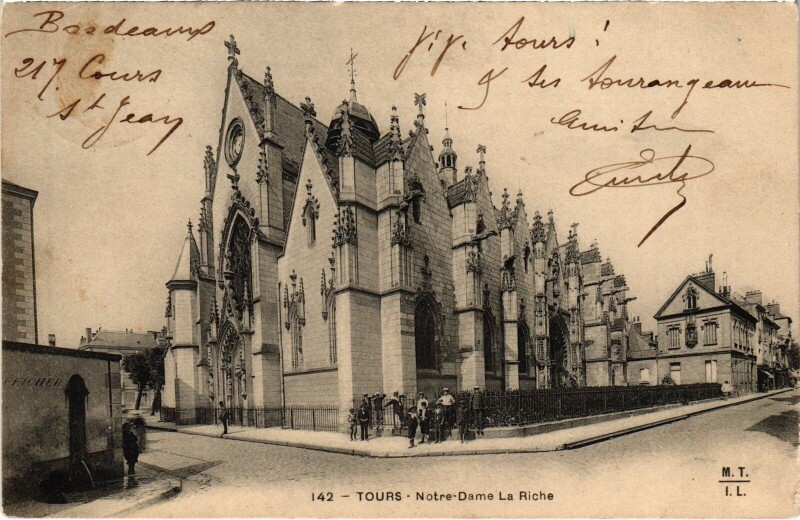 Bordeaux
217 Cours
St Jean
Vive Tours !
& les Tourangeaux
Amitiés
AFFICHER
142 – TOURS - Notre-Dame La Riche
M. T.
I. L.